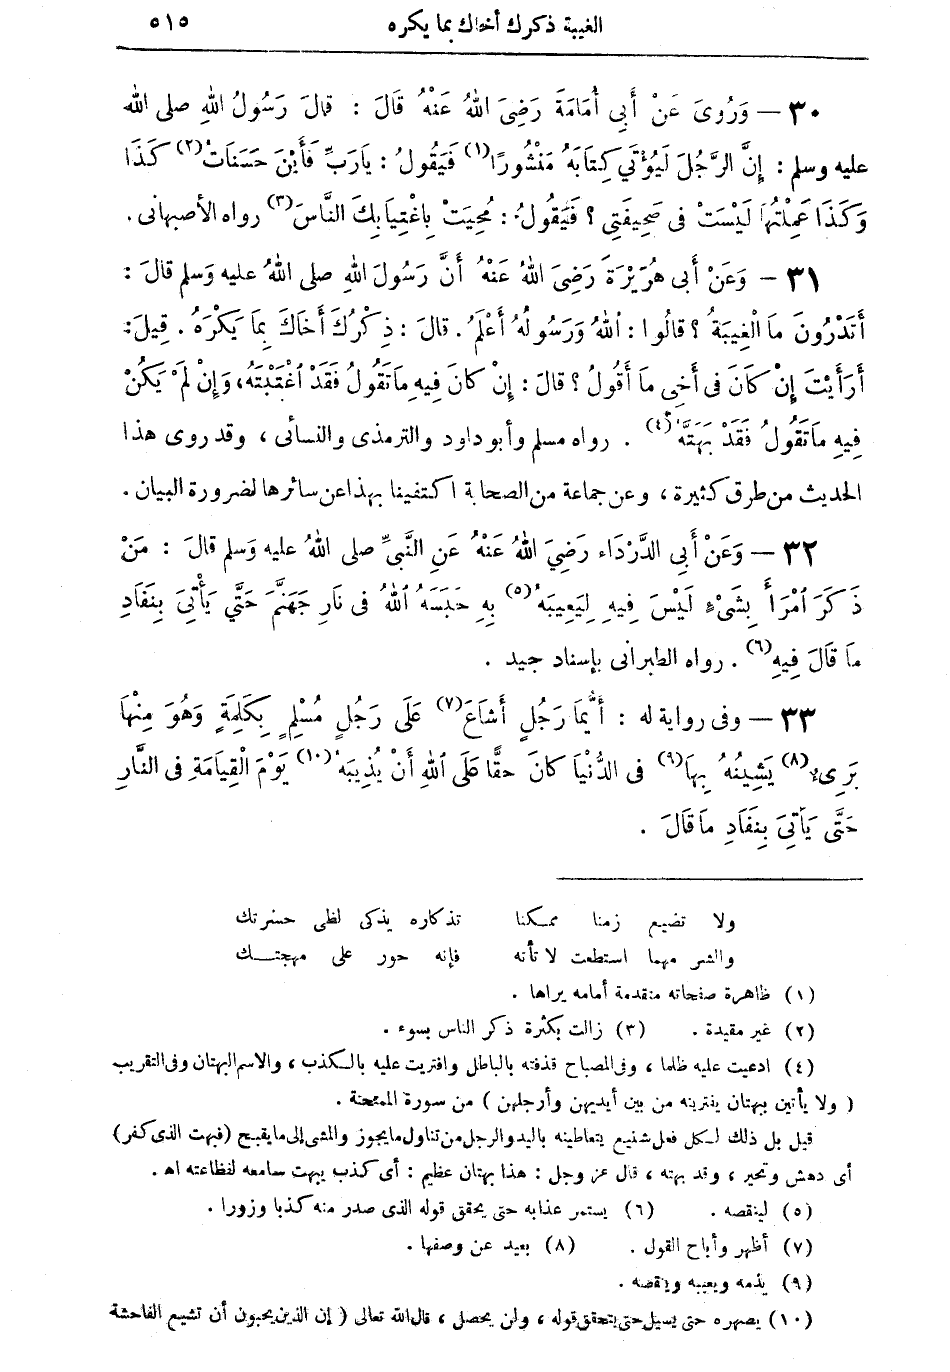 الغيبة ذكرك أخاك بما يكره ٥١٥
٣٠ — وَرُوِىَ عَنْ أَبِى أُمَامَةَ رَضِىَ اللهُ عَنْهُ قَالَ : قَالَ رَسُولُ اللهِ صلى الله
عليه وسلم : إِنَّ الرَّجُلَ لَيُؤْتَى كِتَابَهُ مَنْشُورًا(١) فَيَقُولُ : يَارَبِّ فَأَيْنَ حَسَنَاتُ(٢) كَذَا
وَكَذَا عَمِلْتُهَا لَيْسَتْ فى صَحِيفَتِى ؟ فَيَقُولُ : مُحِيَتْ بِاغْتِيَابِكَ النَّاسَ(٣) رواه الأصبهانى .
٣١ — وَعَنْ أَبى هُرَيْرَةَ رَضِىَ اللهُ عَنْهُ أَنَّ رَسُولَ اللهِ صلى اللهُ عليه وَسلم قالَ :
أَتَدْرُونَ مَا الْغِيبَةُ ؟ قالُوا : اللهُ وَرَسُولُهُ أَعْلَمُ . قالَ : ذِكْرُكَ أَخَاكَ بِمَا يَكْرَهُ . قِيلَ :
أَرَأَيْتَ إِنْ كَانَ فى أَخِى مَا أَقُولُ ؟ قالَ : إِنْ كانَ فِيهِ مَا تَقُولُ فَقَدَ اغْتَبْتَهُ ، وَإِنْ لَمْ يَكُنْ
فِيهِ مَا تَقُولُ فَقَدْ بَهَتَّهُ(٤) . رواه مسلم وأبو داود والترمذى والنسائى ، وقد روى هذا
الحديث من طرق كثيرة ، وعن جماعة من الصحابة اكتفينا بهذا عن سائرها لضرورة البيان .
٣٢ — وَعَنْ أَبِى الدَّرْدَاء رَضِيَ اللهُ عَنْهُ عَنِ النَّبِىِّ صلى اللهُ عليه وَسلم قالَ : مَنْ
ذَكَرَ امْرَأً بِشَىْءٍ لَيْسَ فِيهِ لِيَعِيبَهُ(٥) بِهِ حَبَسَهُ اللهُ فى نَارِ جَهَنَّمَ حَتَّى يَأْتِىَ بِنَفَادِ
مَا قَالَ فِيهِ(٦) . رواه الطبرانى بإسناد جيد .
٣٣ — وفى رواية له : أَيُّمَا رَجُلٍ أَشَاعَ(٧) عَلَى رَجُلٍ مُسْلِمٍ بِكَلِمَةٍ وَهُوَ مِنْهَا
بَرِىءٌ(٨) يَشِينُهُ بِهَا(٩) فى الدُّنْيَا كانَ حقًّا عَلَى اللهِ أَنْ يُذِيبَهُ(١٠) يَوْمَ الْقِيَامَةِ فى النَّارِ
حَتَّى يَأْتِىَ بِنَفَادِ مَا قَالَ .
ولا تضيع زمنا ممكنا تذكاره يذكى لظى حسرتك
والشر مهما اسطعت لا تأته فإنه حور على مهجتك
(١) ظاهرة صفحاته متقدمة أمامه يراها .
(٢) غير مقيدة . (٣) زالت بكثرة ذكر الناس بسوء .
(٤) ادعيت عليه ظلما ، وفى المصباح قذفته بالباطل وافتريت عليه بالكذب ، والاسم البهتان وفى التقريب
( ولا يأتين ببهتان يفترينه من بين أيديهن وأرجلهن ) من سورة الممتحنة .
قيل بل ذلك لكل فعل شنيع يتعاطينه باليد والرجل من تناول ما يجوز والمشى إلى ما يقبح (فبهت الذى كفر)
أى دهش وتحير ، وقد بهته ، قال عز وجل : هذا بهتان عظيم : أى كذب يبهت سامعه لفظاعته اه .
(٥) لينقصه . (٦) يستمر عذابه حتى يحقق قوله الذى صدر منه كذبا وزورا .
(٧) أظهر وأباح القول . (٨) بعيد عن وصفها .
(٩) يذمه ويعيبه وينقصه .
(١٠) يصهره حتى يسيل حتى يتحقق قوله ، ولن يحصل ، قال الله تعالى ( إن الذين يحبون أن تشيع الفاحشة